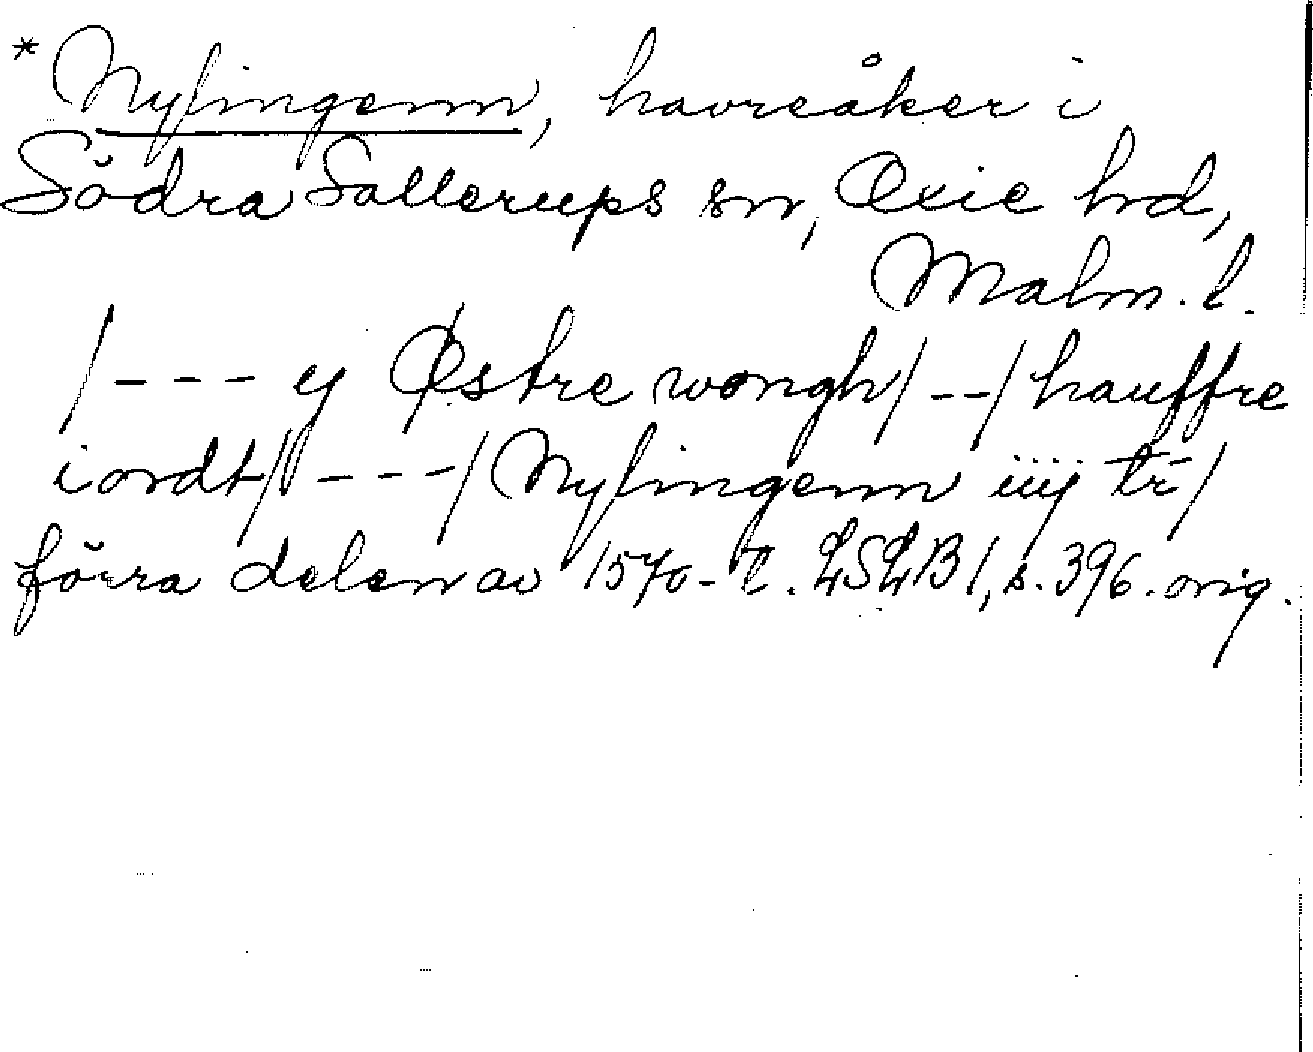 * Nyſingenn, havreåker i
Södra Sallerups sn, Oxie hd,
Malm. l.
/--- y Østre wongh/--/hauffre
iordt/ ---/ Nyſingenn iiij tr̄/
förra delen av 1570-t. LSLB 1, s. 396. orig.